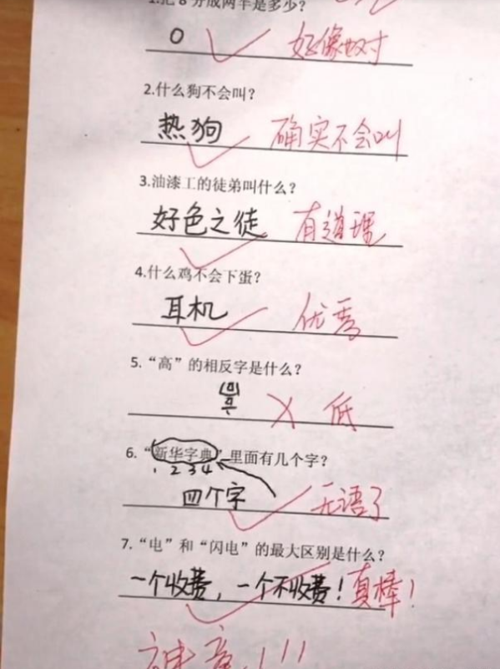 1.把 8 分成两半是多少?
0 好像蛮对
2.什么狗不会叫?
热狗 确实不会叫
3.油漆工的徒弟叫什么?
好色之徒 有道理
4.什么鸡不会下蛋?
耳机 优秀
5.“高”的相反字是什么?
低
6.“新华字典”里面有几个字?
1 2 3 4
四个字 无语了
7.“电”和“闪电”的最大区别是什么?
一个收费，一个不收费! 真棒!
神童!!!